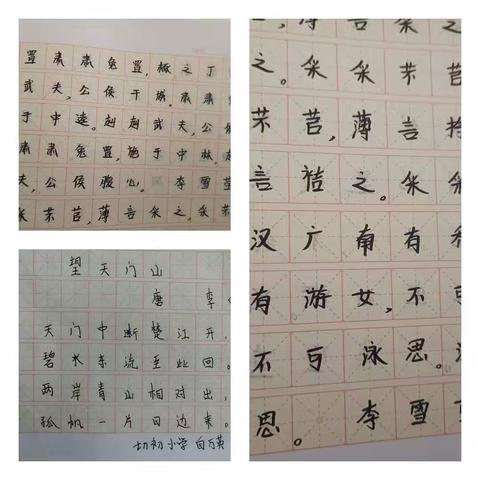 罝肃肃兔罝,椓之丁
武夫,公侯干城。肃肃
于中逵。赳赳武夫,公侯
肃肃兔罝,施于中林。
夫,公侯腹心。 李雪莹
采芣苢,薄言采之。采芣
望天门山
唐 李
天门中断楚江开,
碧水东流至此回。
两岸青山相对出,
孤帆一片日边来。
切初小学 白万英
薄言采
之。采采芣苢
芣苢,薄言
言袺之。采采
汉广南有乔
有游女,不可
不可泳思。
思。 李雪